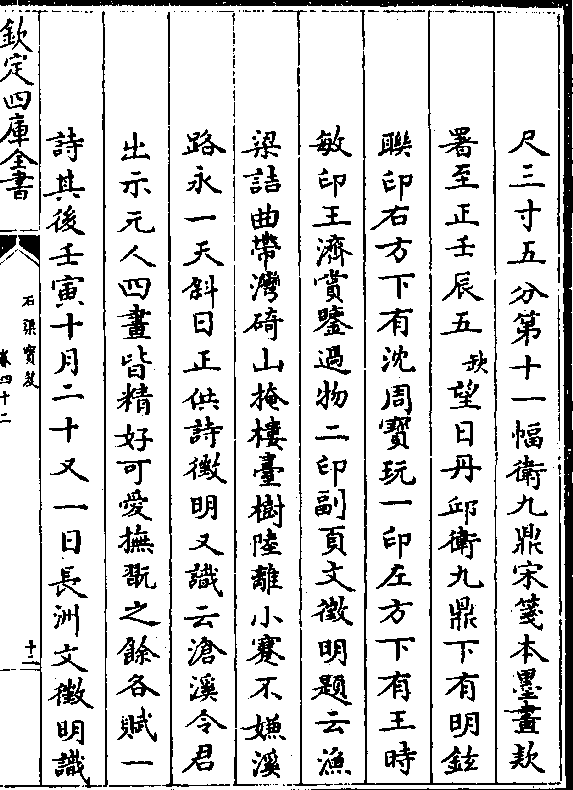 尺三寸五分第十一幅衛九鼎宋箋本墨畫款
署至正壬辰五缺望日丹邱衛九鼎下有明鉉
聨印右方下有沈周寶玩一印左方下有王時
敏印王濟賞鑒過物二印副頁文徵明題云漁
梁詰曲帶灣碕山掩樓臺樹陸離小蹇不嫌溪
路永一天斜日正供詩徴明又識云滄溪令君
出示元人四畫皆精好可愛撫翫之餘各賦一
詩其後壬寅十月二十又一日長洲文徵明識
欽定四庫全書
石渠寶笈
卷四十二
十二